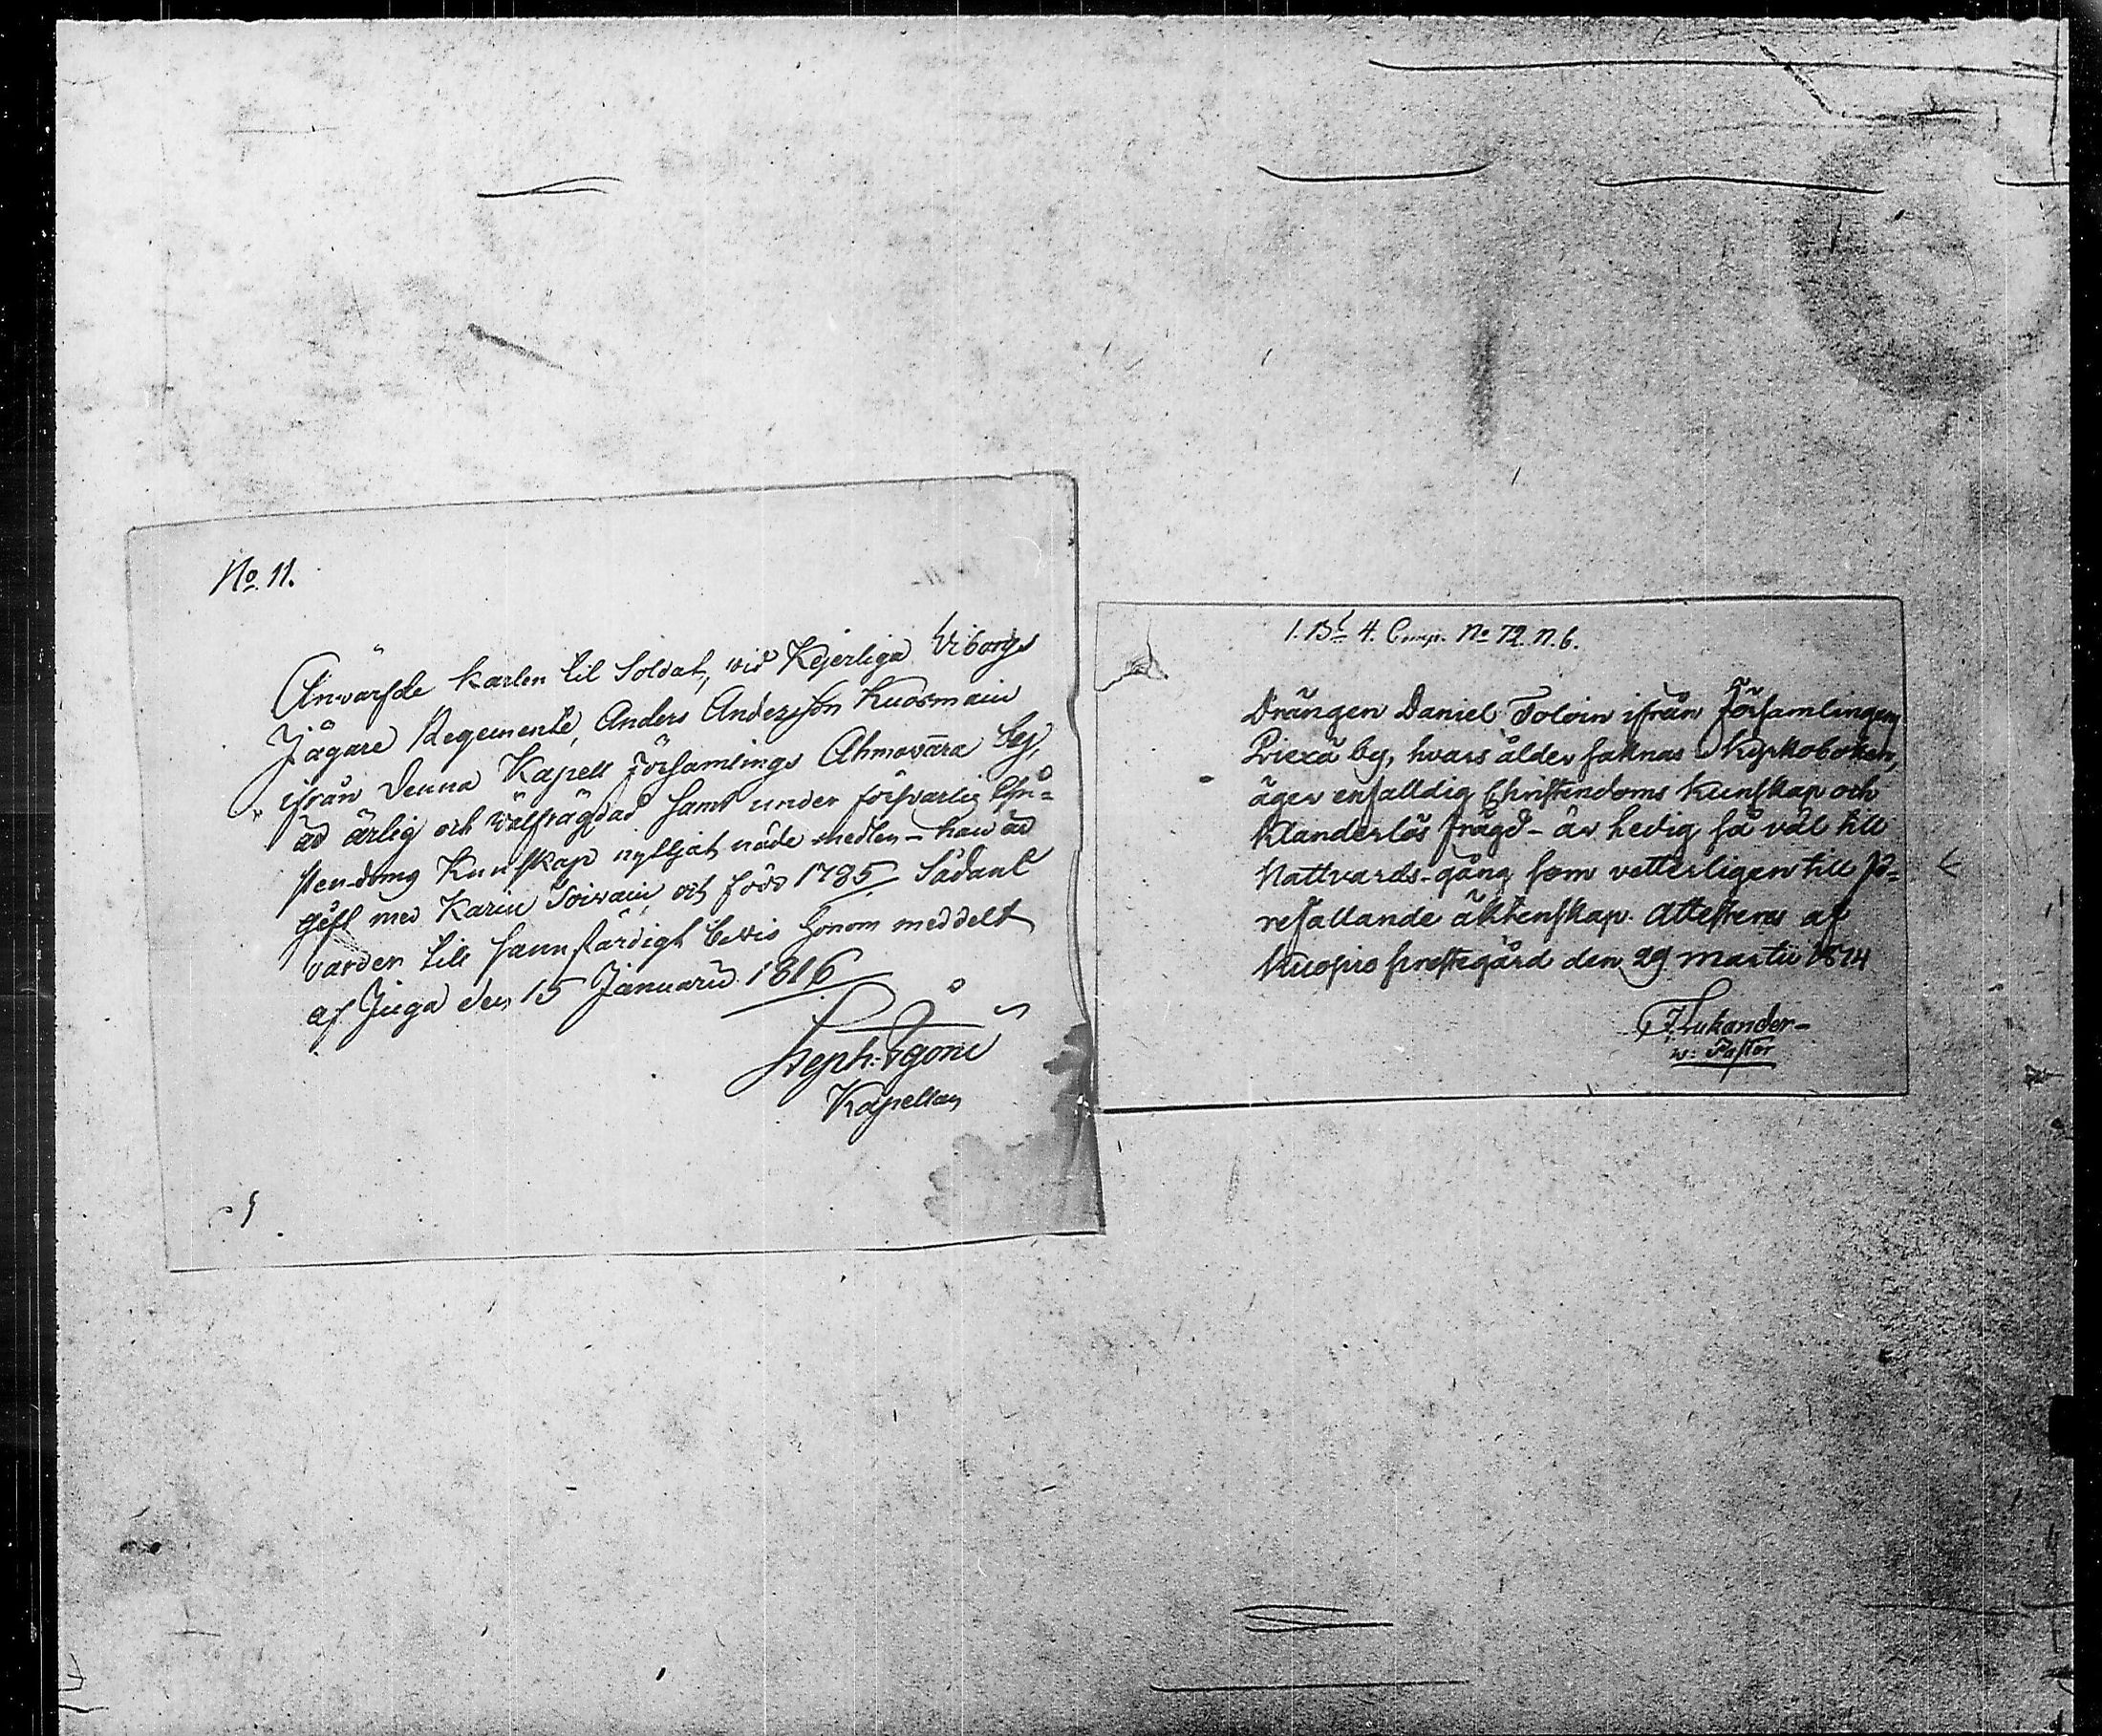 No 11.
Anwärfde Karlen til Soldat, wid Kejserliga Wiborgs
Jägare Regemente, Anders Andersson Kuosmain
ifrån denna Kapell Församlings Ahmovara by,
är ärlig och wälfrägdad samt under försvarlig Chri-
stendoms Kunskap nyttjat nåde medlen - han är
gift med Karin Toivain och född 1785 Sådant
varder till sannfärdigt bevis honom meddelt
af Juga den 15 Januarii 1816
Steph:
Kapellan
1. Bt 4. Comp. No 72. N. 6.
Drängen Daniel Toloin ifrån Församlingens
Priexä by, hvars ålder saknas i Kyrkoboken,
äger enfalldig Christendoms Kunskap och
Klanderlös frägd - är ledig så väl till
Nattvards-gång som vetterligen till fö-
refallande äktenskap. Attesteras af
Kuopio prestegård den 29 Martii 1814
Lukander -
v: Pastor